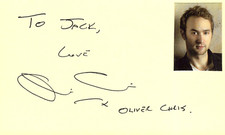 To JACK,
LOVE
OLIVER CHRIS.